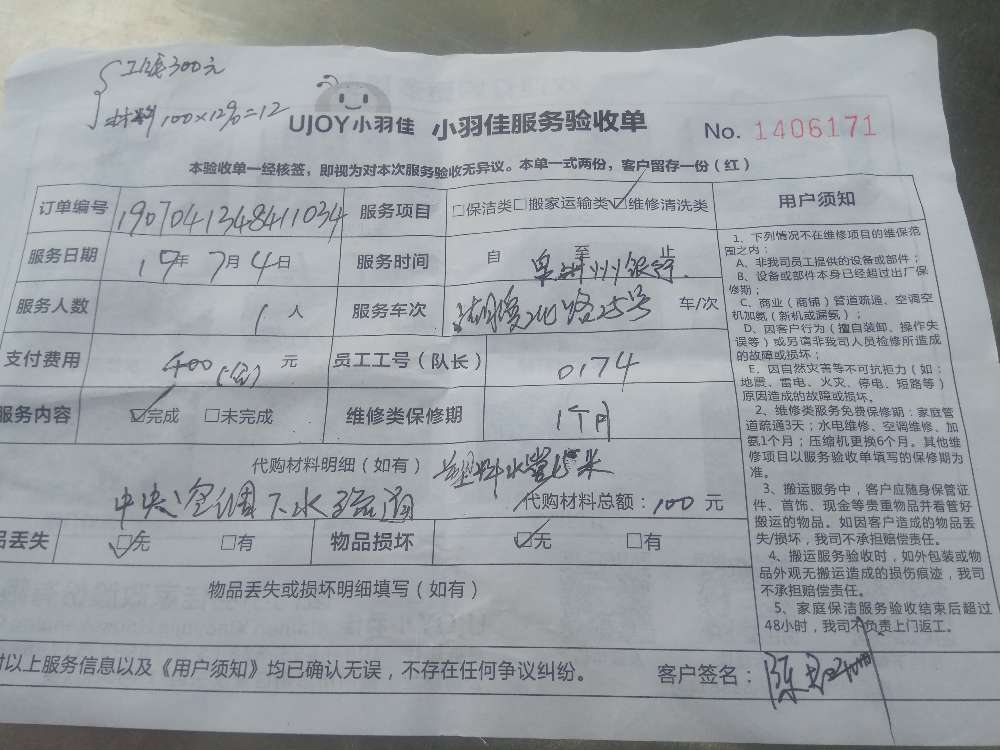 工钱300元
材料100×12%=12
UJOY小羽佳 小羽佳服务验收单 No. 1406171
本验收单一经核签，即视为对本次服务验收无异议。本单一式两份，客户留存一份（红）
订单编号 190704134841 1034 服务项目 □保洁类□搬家运输类☑维修清洗类
服务日期 19年7月4日 服务时间 自 至 止
泉州银行
服务人数 1人 服务车次 湖滨北路25号 车/次
支付费用 400 元 员工工号（队长） 0174
服务内容 ☑完成 □未完成 维修类保修期 1个月
代购材料明细（如有） 塑料水管 米
中央空调下水疏通 代购材料总额：100元
品丢失 ☑无 □有 物品损坏 ☑无 □有
物品丢失或损坏明细填写（如有）
对以上服务信息以及《用户须知》均已确认无误，不存在任何争议纠纷。 客户签名：陈
用户须知
1、下列情况不在维修项目的维保范
围之内：
A、非我司员工提供的设备或部件；
B、设备或部件本身已经超过出厂保
修期；
C、商业（商铺）管道疏通、空调空
机加氨（新机或漏氨）；
D、因客户行为（擅自装卸、操作失
误等）或另请非我司人员检修所造成
的故障或损坏；
E、因自然灾害等不可抗拒力（如：
地震、雷电、火灾、停电、短路等）
原因造成的故障或损坏。
2、维修类服务免费保修期：家庭管
道疏通3天；水电维修、空调维修、加
氨1个月；压缩机更换6个月。其他维
修项目以服务验收单填写的保修期为
准。
3、搬运服务中，客户应随身保管证
件、首饰、现金等贵重物品并看管好
搬运的物品。如因客户造成的物品丢
失/损坏，我司不承担赔偿责任。
4、搬运服务验收时，如外包装或物
品外观无搬运造成的损伤痕迹，我司
不承担赔偿责任。
5、家庭保洁服务验收结束后超过
48小时，我司不负责上门返工。